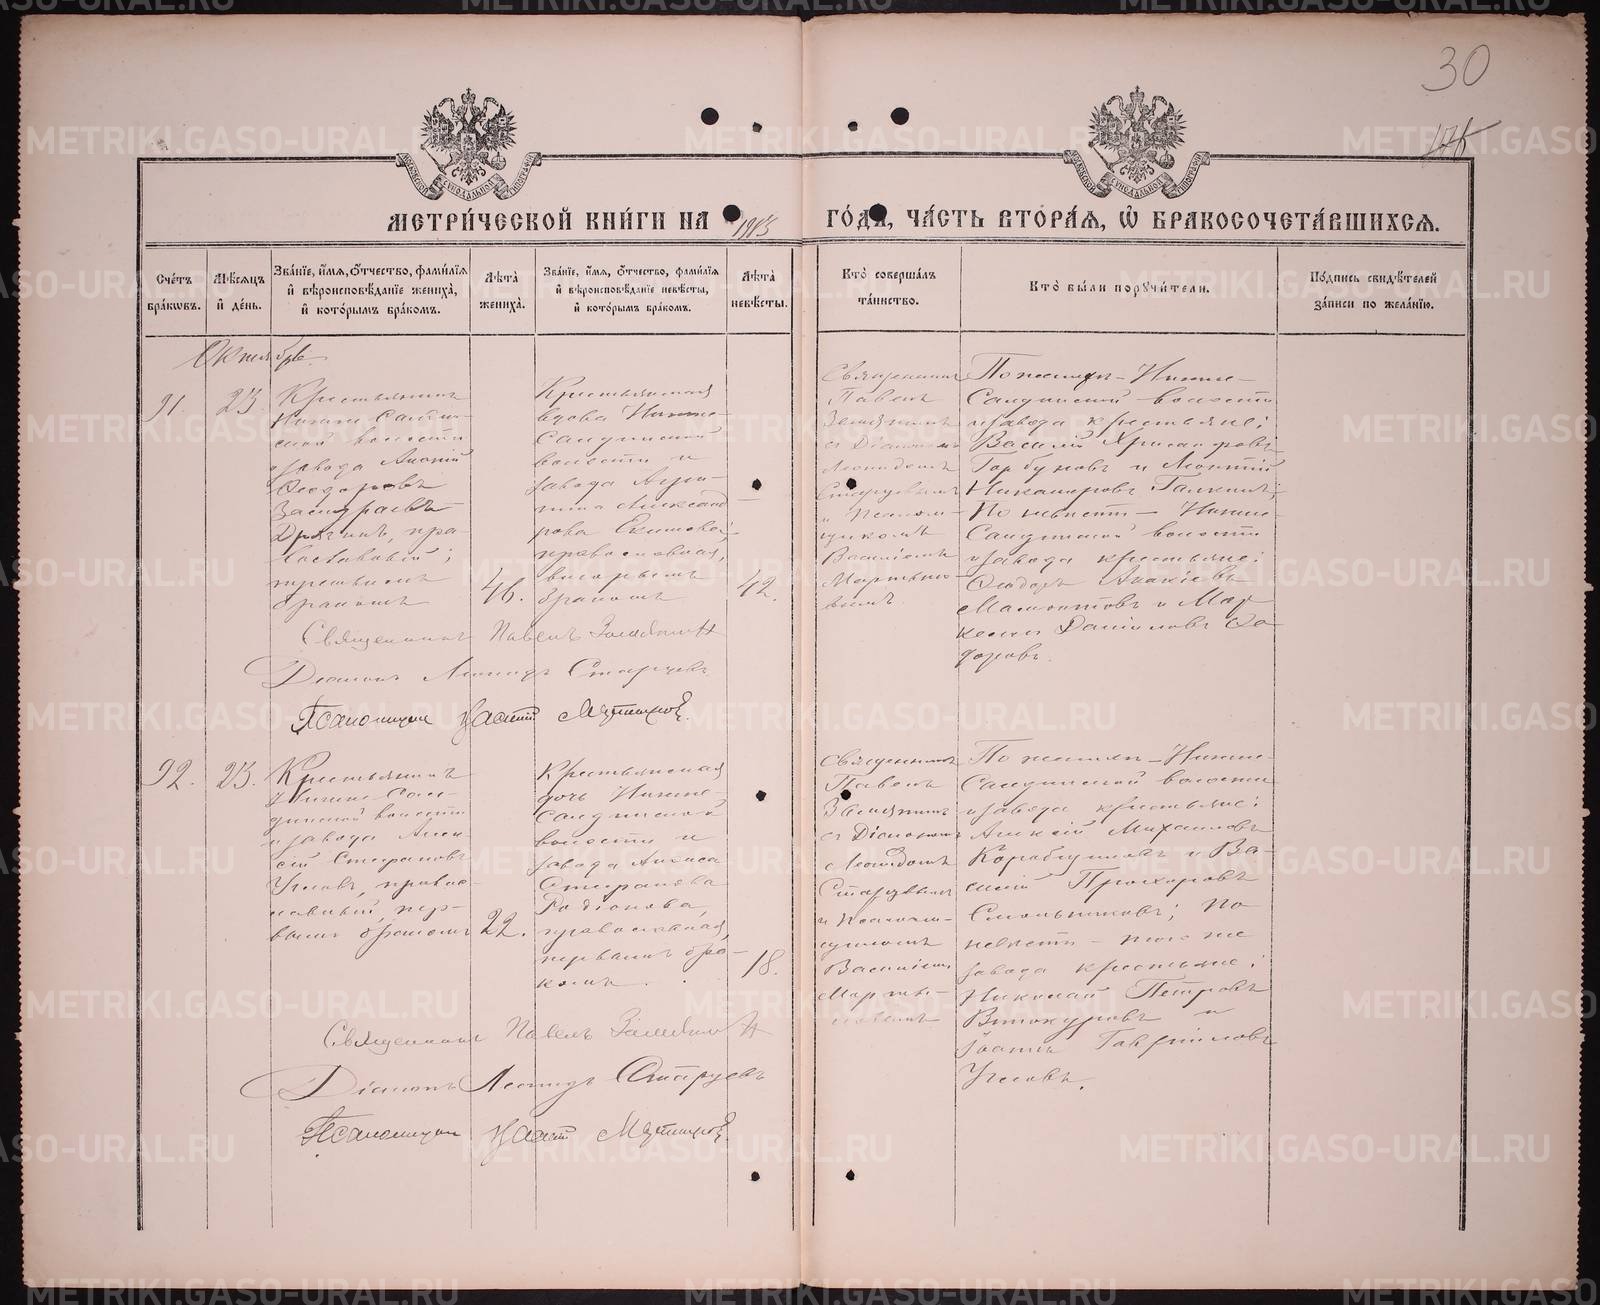 30
МЕТРИ́ЧЕСКОЙ КНИ́ГИ НА 1913 ГО́ДЪ, ЧА́СТЬ ВТОРА́Я, Ѡ БРАКОСОЧЕТА́ВШИХСЯ.
Сче́тъ бра́кѡвъ.
Мѣ́сяцъ и҆ де́нь.
Зва́нїе, и҆́мя, ѻ҆́тчество, фами́лїя и҆ вѣроисповѣ́данїе жениха̀, и҆ кото́рымъ бра́комъ.
Лѣ́та жениха̀.
Зва́нїе, и҆́мя, ѻ҆́тчество, фами́лїя и҆ вѣроисповѣ́данїе невѣ́сты, и҆ кото́рымъ бра́комъ.
Лѣ́та невѣ́сты.
Кто̀ соверша́лъ та́инство.
Кто̀ бы́ли порꙋчи́тели.
По́дпись свидѣ́телей за́писи по жела́нїю.
Октябрь
91.
23.
Крестьянинъ
Нижне-Салдин-
ской волости
и завода Ананій
Ѳеодоровъ
Дрягинъ, пра-
вославный;
третьимъ
бракомъ
46.
Крестьянская
вдова Нижне-
Салдинской
волости и
завода Агри-
пина Александ-
рова
православная,
вторымъ
бракомъ
42.
Священникъ
Павелъ
съ Діакономъ
Леонидомъ
Старцевымъ
и Псалом-
щикомъ
Василіемъ
Мартыно-
вымъ.
По женихѣ - Нижне-
Салдинской волости
и завода крестьяне:
Василій Хрисанфовъ
Горбуновъ и Леонтій
Никаноровъ Галкинъ;
По невѣстѣ - Нижне-
Салдинской волости
и завода крестьяне:
Ѳеодоръ Ананіевъ
Мамонтовъ и Мар
келъ Даниловъ Ѳе-
доровъ.
Священникъ Павелъ
Діаконъ Леонидъ Старцевъ
Псаломщикъ Василій Мартыновъ.
92.
23.
Крестьянинъ
Нижне-Сал-
динской волости
и завода Алек
сѣй Стефановъ
Угловъ, правос-
лавный, пер-
вымъ бракомъ
22.
Крестьянская
дочь Нижне-
Салдинской
волости и
завода Анисія
Стефанова
Родіонова,
православная,
первымъ бра-
комъ.
18.
Священникъ
Павелъ
съ Діакономъ
Леонидомъ
Старцевымъ
и Псалом-
щикомъ
Василіемъ
Марты-
новымъ
По женихѣ - Нижне-
Салдинской волости
и завода крестьяне:
Алексѣй Михаиловъ
Кораблушкинъ и Ва-
силій Прохоровъ
Смольниковъ; По
невѣстѣ - того же
завода крестьяне:
Николай Петровъ
Винокуровъ и
Іоаннъ Гавріиловъ
Угловъ.
Священникъ Павелъ
Діаконъ Леонидъ Старцевъ
Псаломщикъ Василій Мартыновъ.
METRIKI.GASO-URAL.RU